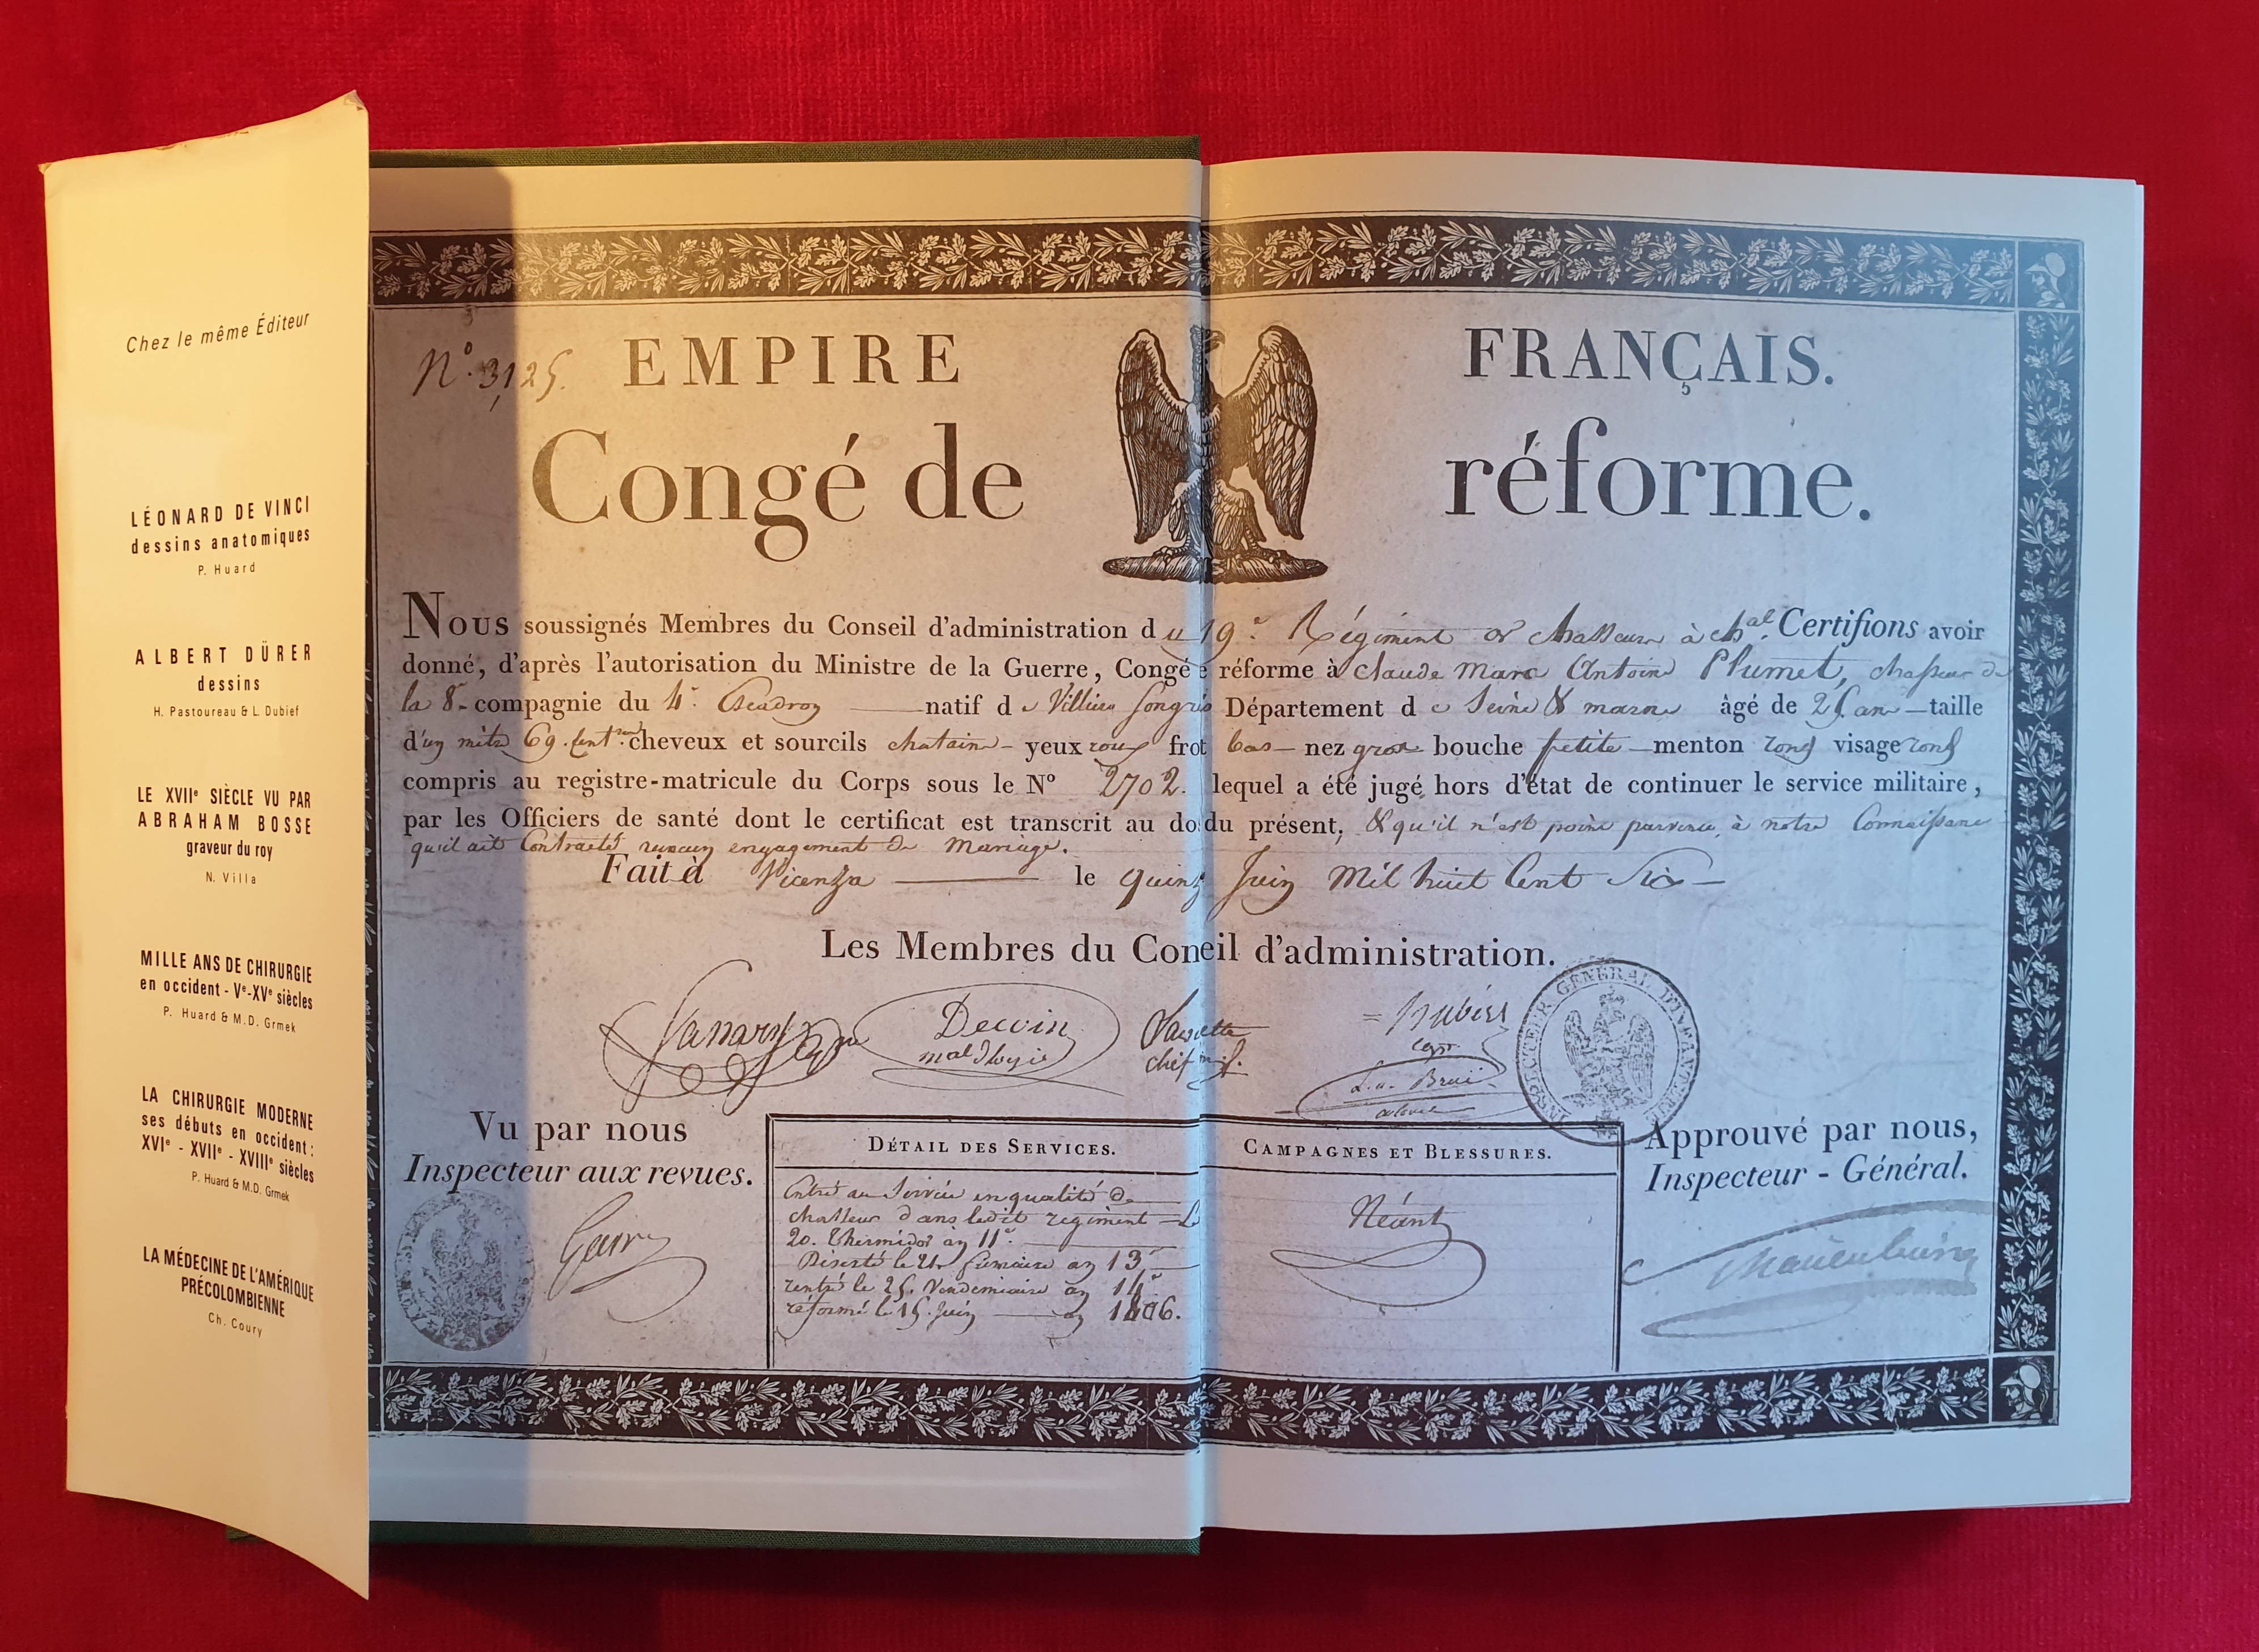 Chez le même Éditeur
LÉONARD DE VINCI
dessins anatomiques
P. Huard
ALBERT DÜRER
dessins
H. Pastoureau & L. Dubief
LE XVIIe SIÈCLE VU PAR
ABRAHAM BOSSE
graveur du roy
N. Villa
MILLE ANS DE CHIRURGIE
en occident - Ve-XVe siècles
P. Huard & M.D. Grmek
LA CHIRURGIE MODERNE
ses débuts en occident :
XVIe - XVIIe - XVIIIe siècles
P. Huard & M.D. Grmek
LA MÉDECINE DE L'AMÉRIQUE
PRÉCOLOMBIENNE
Ch. Coury
No. 3,125. EMPIRE FRANÇAIS.
Congé de réforme.
Nous soussignés Membres du Conseil d'administration du 19e Régiment de chasseurs à chal. Certifions avoir
donné, d'après l'autorisation du Ministre de la Guerre, Congé e réforme à Claude Marc Antoine Plumet, chasseur de
la 8e compagnie du 4e Escadron natif de Villiers Département de Seine & marne âgé de 25 ans taille
d'un mètre 69. cheveux et sourcils chatains yeux roux frot bas nez gros bouche petite menton rond visage rond
compris au registre-matricule du Corps sous le No 2702. lequel a été jugé hors d'état de continuer le service militaire,
par les Officiers de santé dont le certificat est transcrit au do du présent, & qu'il n'est point parvenu à notre Connaissance
qu'il ait Contracté aucun engagement de Mariage.
Fait à Vicenza le quinze Juin Mil huit Cent Six
Les Membres du Coneil d'administration.
Decoin
chef
INSPECTEUR GÉNÉRAL D'INFANTERIE
Vu par nous
Inspecteur aux revues.
DÉTAIL DES SERVICES.
Entré au Service en qualité de
chasseur dans ledit régiment le
20. Thermidor an 11e
Déserté le 21 frimaire an 13e
rentré le 25. Vendemiaire an 14e
réformé le 15. Juin an 1806.
CAMPAGNES ET BLESSURES.
Néant
Approuvé par nous,
Inspecteur - Général.